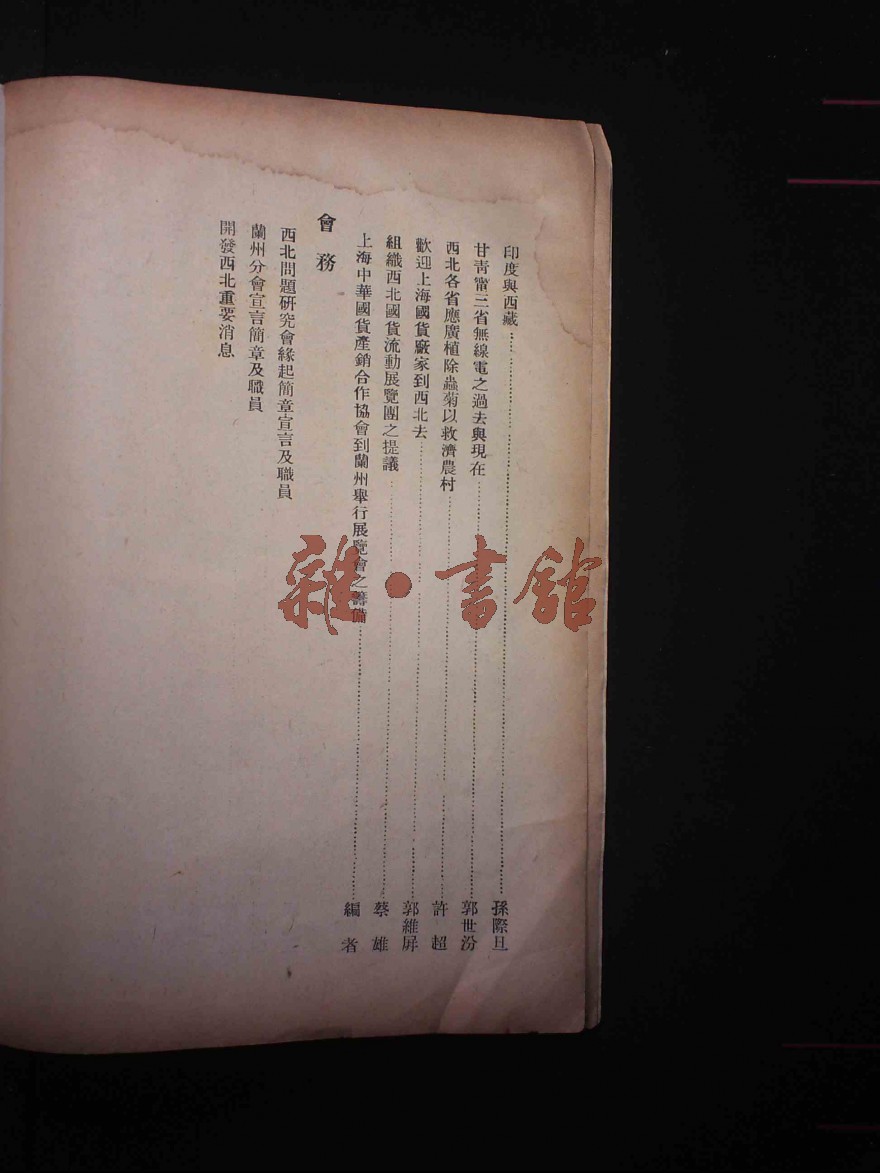 印度與西藏……孫際旦
甘青甯三省無線電之過去與現在……郭世汾
西北各省應廣植除蟲菊以救濟農村……許超
歡迎上海國貨廠家到西北去……郭維屏
組織西北國貨流動展覽團之提議……蔡雄
上海中華國貨產銷合作協會到蘭州舉行展覽會之籌備……編者
會務
西北問題研究會緣起簡章宣言及職員
蘭州分會宣言簡章及職員
開發西北重要消息
雜·書館